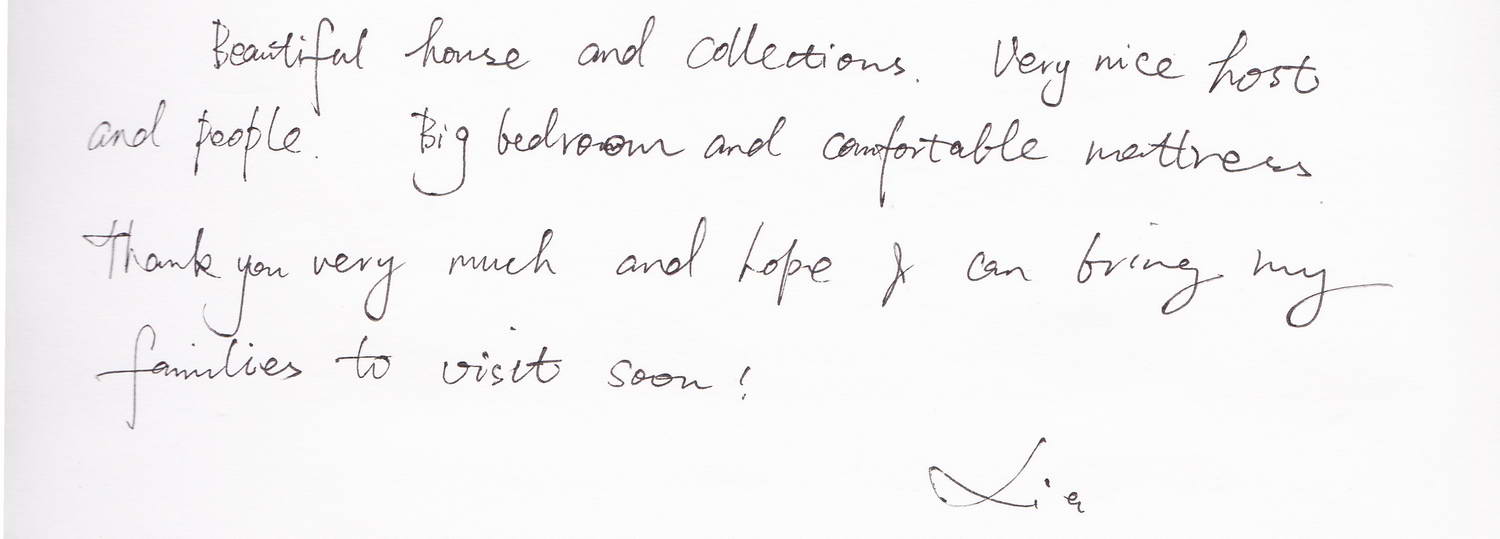 Beautiful house and collections. Very nice host
and people. Big bedroom and comfortable mattress.
Thank you very much and hope I can bring my
families to visit soon!